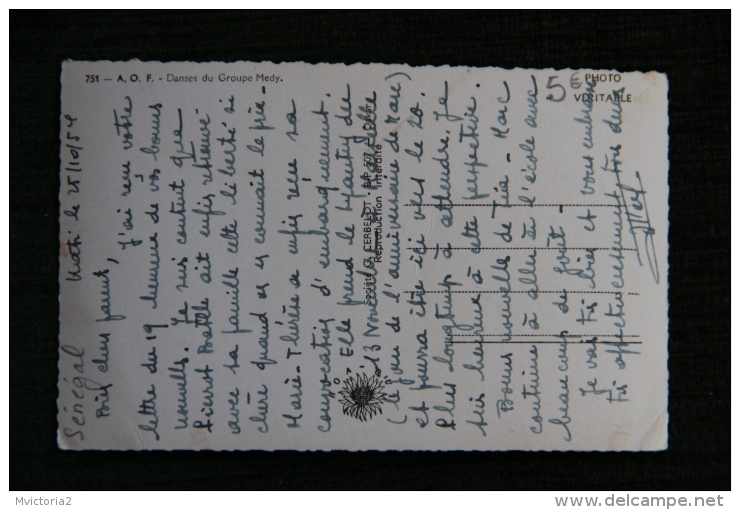 751 — A. O. F. - Danses du Groupe Medy.
PHOTO
VÉRITABLE
5€
Sénégal
le 25/10/54
Bien chers parents,
J'ai reçu votre
lettre du 19 heureux de vos bonnes
nouvelles. Je suis content que
Pierrot ait enfin retrouvé
avec sa famille cette liberté si
chère quand on en connait le prix -
Marie-Thérèse a enfin reçu sa
convocation d'embarquement.
Elle prend le bateau
13 Novembre à Marseille
(le jour de l'anniversaire de Marc)
et pourra être ici vers le 20.
Plus longtemps à attendre. Je
suis heureux à cette perspective.
Bonnes nouvelles de - Marc
continue à aller à l'école avec
beaucoup de goût -
Je vais très bien et vous embrasse
très affectueusement tous deux
Société G. CERBELOT - B.P. 507 -
Reproduction Interdite
Mvictoria2
http://www.delcampe.net